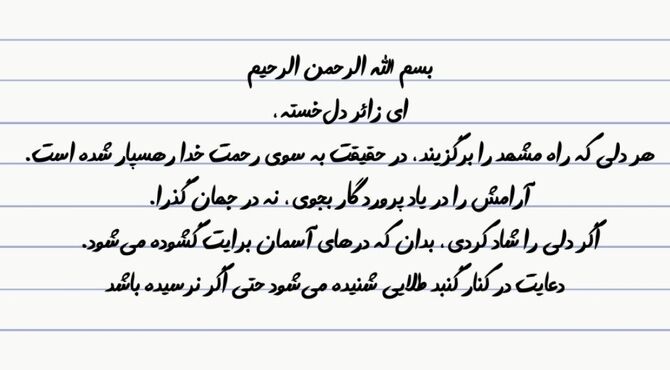 بسم الله الرحمن الرحیم
ای زائر دل‌خسته،
هر دلی که راه مشهد را برگزیند، در حقیقت به سوی رحمت خدا رهسپار شده است.
آرامش را در یاد پروردگار بجوی، نه در جهان گذرا.
اگر دلی را شاد کردی، بدان که درهای آسمان برایت گشوده می‌شود.
دعایت در کنار گنبد طلایی شنیده می‌شود حتی اگر نرسیده باشد